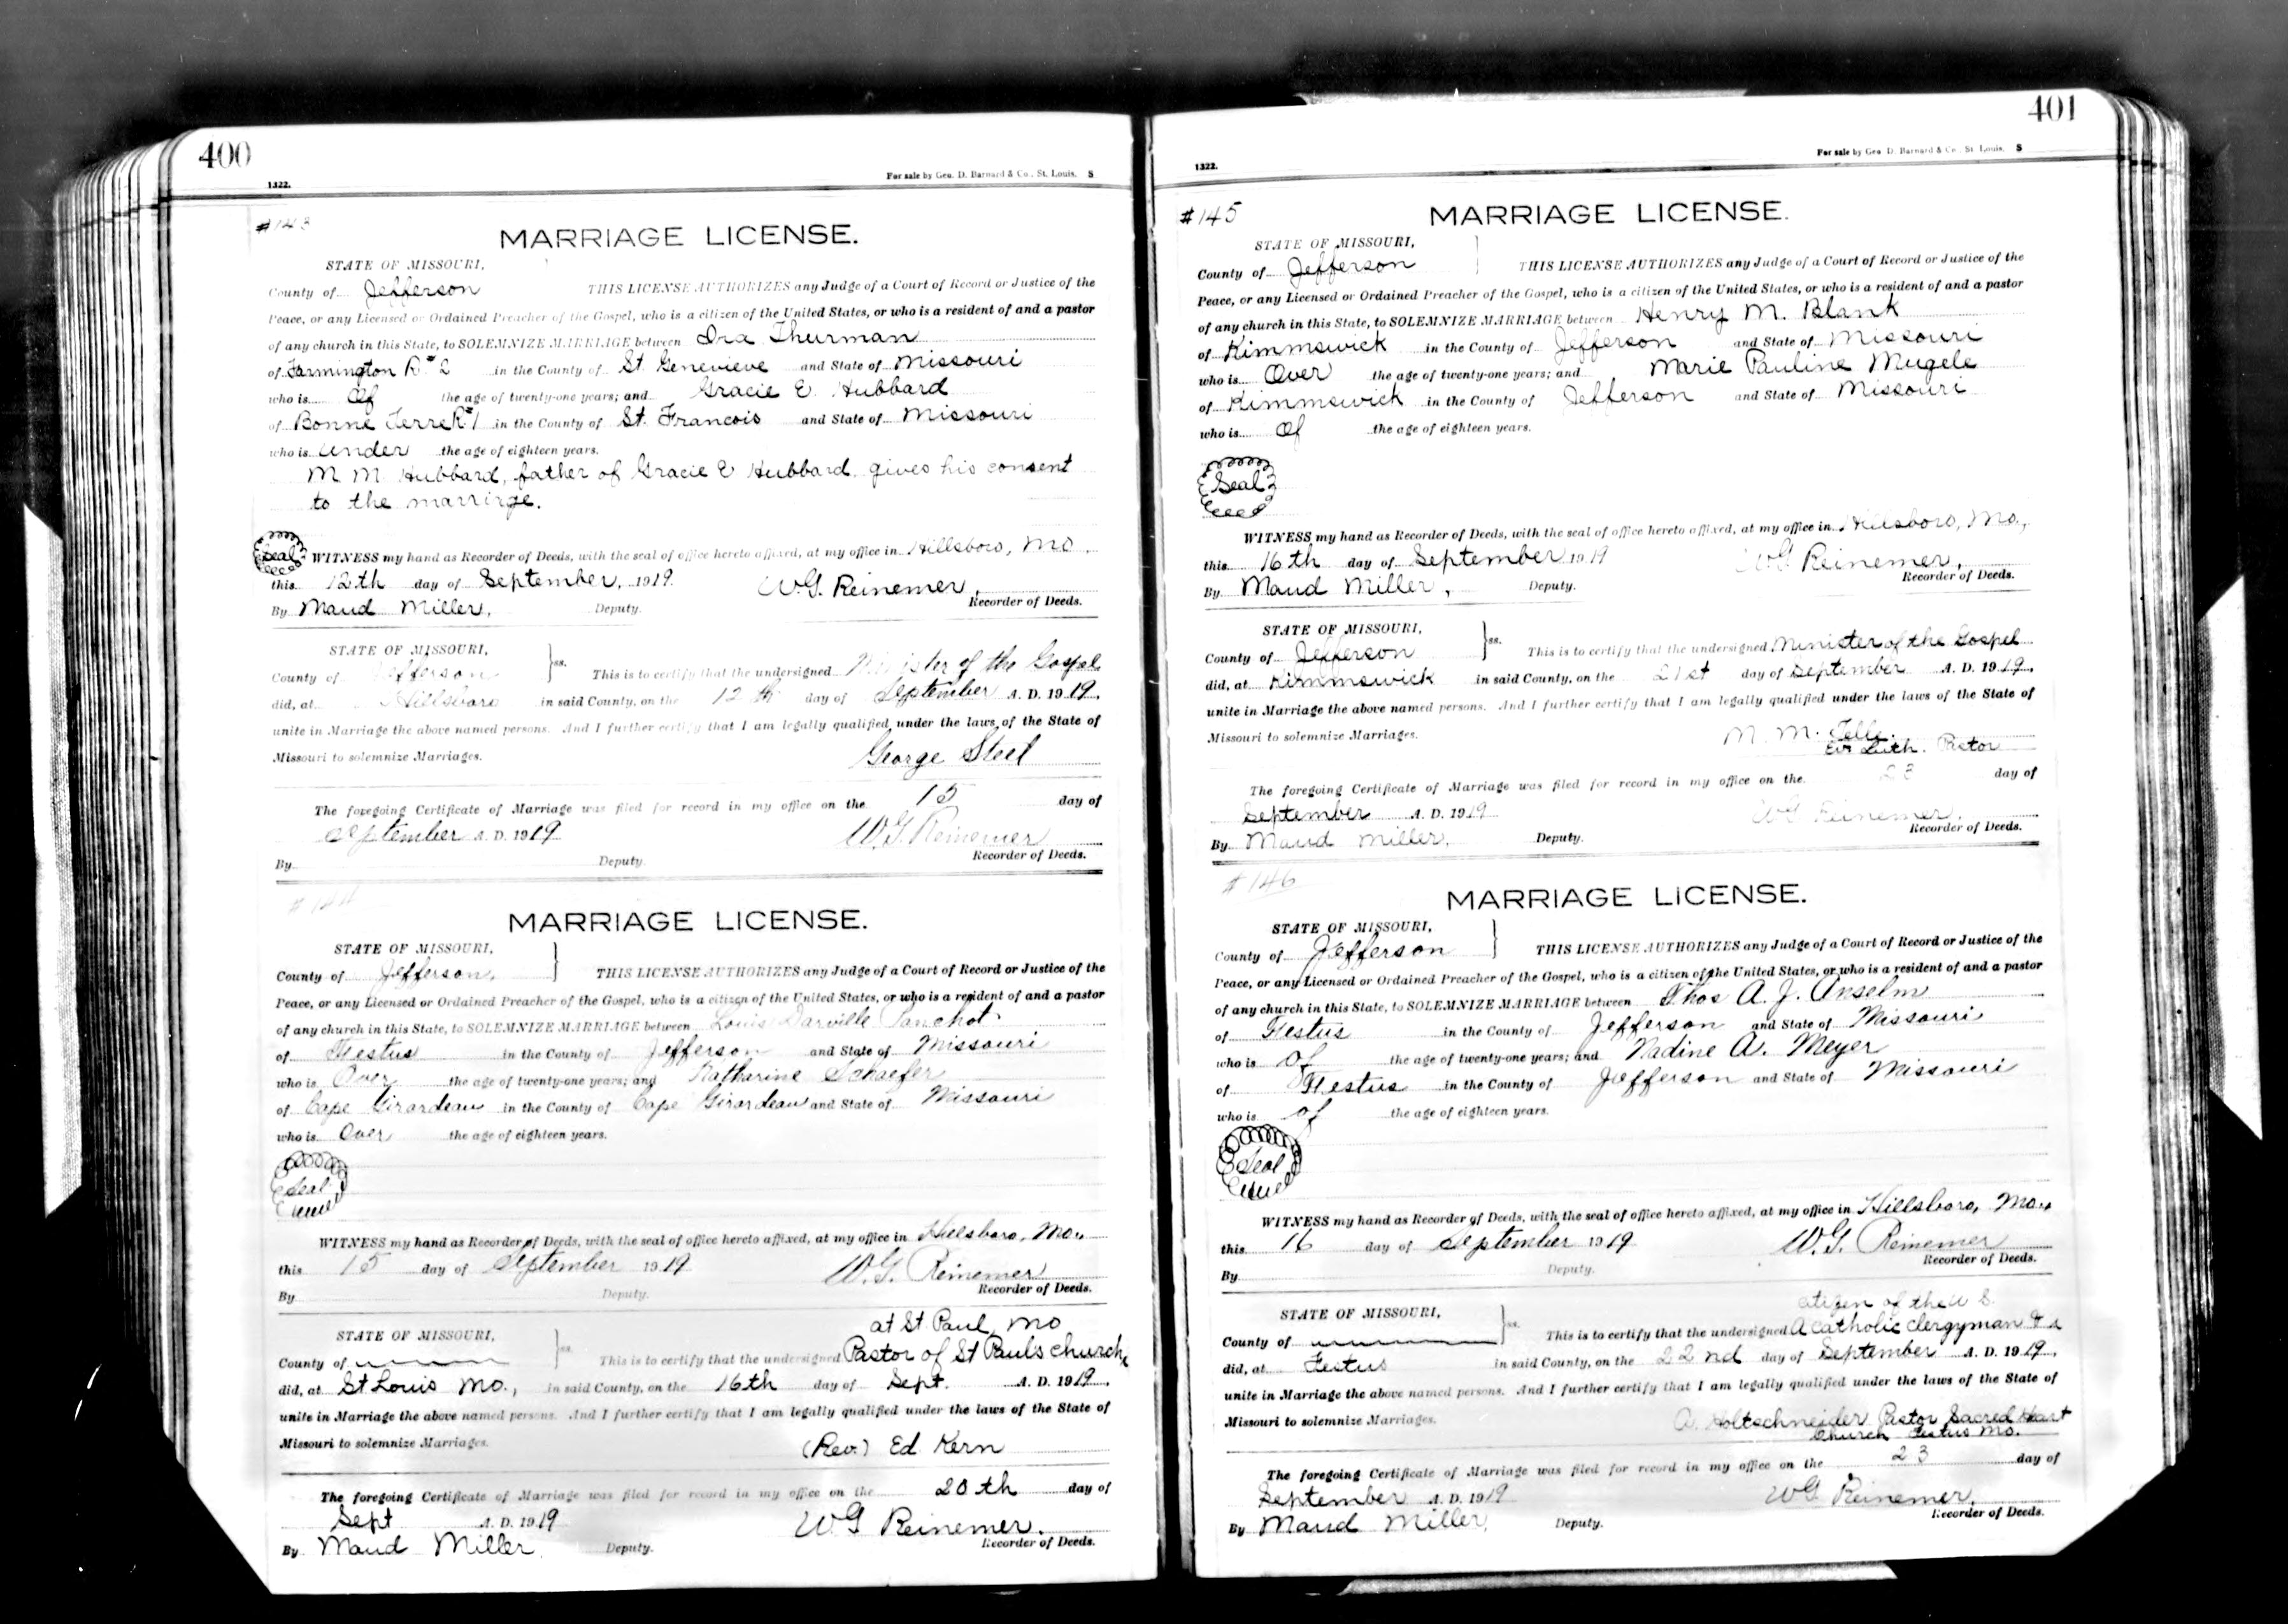 400
1322.
For sale by Geo. D. Barnard & Co., St. Louis. S
#143
MARRIAGE LICENSE.
STATE OF MISSOURI,
County of Jefferson THIS LICENSE AUTHORIZES any Judge of a Court of Record or Justice of the
Peace, or any Licensed or Ordained Preacher of the Gospel, who is a citizen of the United States, or who is a resident of and a pastor
of any church in this State, to SOLEMNIZE MARRIAGE between Ira Thurman
of Farmington R#2 in the County of St Genevieve and State of Missouri
who is Of the age of twenty-one years; and Gracie E. Hubbard
of Bonne Terre R#1 in the County of St. Francois and State of Missouri
who is under the age of eighteen years.
M. M. Hubbard, father of Gracie E Hubbard, gives his consent
to the marrirge.
Seal WITNESS my hand as Recorder of Deeds, with the seal of office hereto affixed, at my office in Hillsboro, Mo.
this 12th day of September, 1919. W.G. Reinemer,
By Maud Miller, Deputy. Recorder of Deeds.
STATE OF MISSOURI,
County of Jefferson ss. This is to certify that the undersigned Minister of the Gospel
did, at Hillsboro in said County, on the 12th day of September A. D. 1919.
unite in Marriage the above named persons. And I further certify that I am legally qualified under the laws of the State of
Missouri to solemnize Marriages. George Steel
The foregoing Certificate of Marriage was filed for record in my office on the 15 day of
September A. D. 1919 W.G. Reinemer
By Deputy. Recorder of Deeds.
#144
MARRIAGE LICENSE.
STATE OF MISSOURI,
County of Jefferson, THIS LICENSE AUTHORIZES any Judge of a Court of Record or Justice of the
Peace, or any Licensed or Ordained Preacher of the Gospel, who is a citizen of the United States, or who is a resident of and a pastor
of any church in this State, to SOLEMNIZE MARRIAGE between Louis Darville Panchot
of Festus in the County of Jefferson and State of Missouri
who is Over the age of twenty-one years; and Katharine Schaefer
of Cape Girardeau in the County of Cape Girardeau and State of Missouri
who is Over the age of eighteen years.
Seal
WITNESS my hand as Recorder of Deeds, with the seal of office hereto affixed, at my office in Hillsboro, Mo.
this 15 day of September 1919 W.G. Reinemer
By Deputy. Recorder of Deeds.
at St Paul, Mo
STATE OF MISSOURI,
County of ss. This is to certify that the undersigned Pastor of St Paul's church,
did, at St Louis Mo., in said County, on the 16th day of Sept. A. D. 1919.
unite in Marriage the above named persons. And I further certify that I am legally qualified under the laws of the State of
Missouri to solemnize Marriages. (Rev.) Ed Kern
The foregoing Certificate of Marriage was filed for record in my office on the 20th day of
Sept A. D. 1919 W G Reinemer.
By Maud Miller, Deputy. Recorder of Deeds.
401
1322.
For sale by Geo. D. Barnard & Co., St. Louis. S
#145
MARRIAGE LICENSE.
STATE OF MISSOURI,
County of Jefferson THIS LICENSE AUTHORIZES any Judge of a Court of Record or Justice of the
Peace, or any Licensed or Ordained Preacher of the Gospel, who is a citizen of the United States, or who is a resident of and a pastor
of any church in this State, to SOLEMNIZE MARRIAGE between Henry M. Blank
of Kimmswick in the County of Jefferson and State of Missouri
who is Over the age of twenty-one years; and Marie Pauline Mugele
of Kimmswick in the County of Jefferson and State of Missouri
who is Of the age of eighteen years.
Seal
WITNESS my hand as Recorder of Deeds, with the seal of office hereto affixed, at my office in Hillsboro, Mo.,
this 16th day of September 1919 W G Reinemer,
By Maud Miller, Deputy. Recorder of Deeds.
STATE OF MISSOURI,
County of Jefferson ss. This is to certify that the undersigned Minister of the Gospel
did, at Kimmswick in said County, on the 21st day of September A. D. 1919.
unite in Marriage the above named persons. And I further certify that I am legally qualified under the laws of the State of
Missouri to solemnize Marriages. M. M.
Ev. Luth. Pastor
The foregoing Certificate of Marriage was filed for record in my office on the 23 day of
September A. D. 1919 W G Reinemer.
By Maud Miller, Deputy. Recorder of Deeds.
#146
MARRIAGE LICENSE.
STATE OF MISSOURI,
County of Jefferson THIS LICENSE AUTHORIZES any Judge of a Court of Record or Justice of the
Peace, or any Licensed or Ordained Preacher of the Gospel, who is a citizen of the United States, or who is a resident of and a pastor
of any church in this State, to SOLEMNIZE MARRIAGE between Thos A. J. Anselm
of Festus in the County of Jefferson and State of Missouri
who is of the age of twenty-one years; and Nadine A. Meyer
of Festus in the County of Jefferson and State of Missouri
who is of the age of eighteen years.
Seal
WITNESS my hand as Recorder of Deeds, with the seal of office hereto affixed, at my office in Hillsboro, Mo.,
this 16 day of September 1919 W.G. Reinemer
By Deputy. Recorder of Deeds.
citizen of the U S.
STATE OF MISSOURI,
County of ss. This is to certify that the undersigned A catholic clergyman & a
did, at Festus in said County, on the 22nd day of September A. D. 1919.
unite in Marriage the above named persons. And I further certify that I am legally qualified under the laws of the State of
Missouri to solemnize Marriages. A. Holtschneider Pastor Sacred Heart
Church Festus Mo.
The foregoing Certificate of Marriage was filed for record in my office on the 23 day of
September A. D. 1919 W G Reinemer,
By Maud Miller, Deputy. Recorder of Deeds.